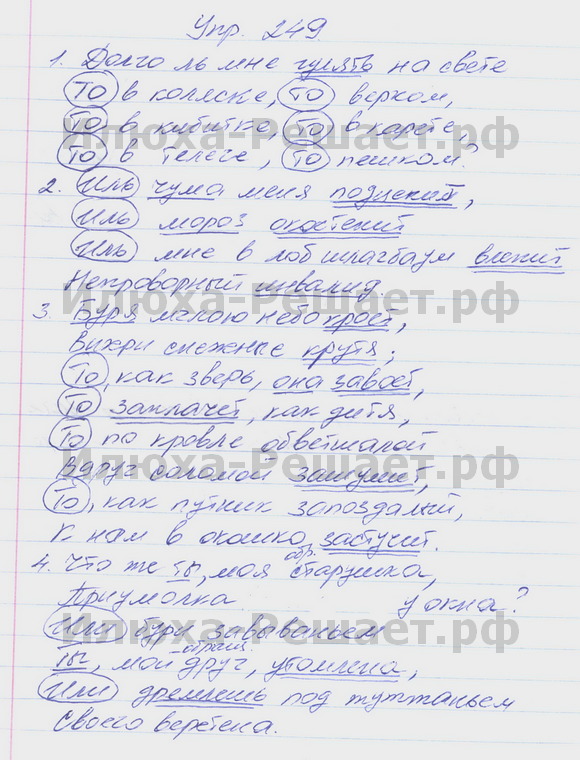 Упр. 249
1. Долго ль мне гулять на свете
То в коляске, то верхом,
То в кибитке, то в карете,
То в телеге, то пешком?
2. Иль чума меня подцепит,
Иль мороз окостенит
Иль мне в лоб шлагбаум влепит
Непроворный инвалид
3. Буря мглою небо кроет,
Вихри снежные крутя;
То, как зверь, она завоет,
То заплачет, как дитя,
То по кровле обветшалой
Вдруг соломой зашумит,
То, как путник запоздалый,
К нам в окошко застучит.
обр.
4. Что же ты, моя старушка,
Приумолкла у окна?
Или бури завываньем
обращ.
Ты, мой друг, утомлена,
Или дремлешь под жужжаньем
Своего веретена.
Илюха-Решает.рф
Илюха-Решает.рф
Илюха-Решает.рф
Илюха-Решает.рф